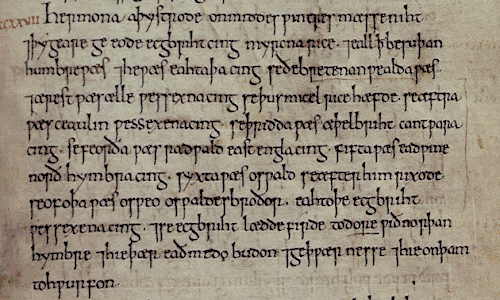 Her mona . aþystrode on middes ƿintres mæsse niht
⁊ þy geare ge eode ecgbriht cing myrcna rice . ⁊ eall ꝥ be suþan
humbre ƿæs . ⁊ he ƿæs eahtaþa cing . se ðe bretenanƿealda ƿæs .
⁊ ærest ƿæs ælle ƿessexna cing se þus micel rice hæfde . se æftra
ƿæs ceaulin ƿessexena cing . se þridda ƿæs æþelbriht cantƿara
cing . se feorða ƿæs rædƿald east engla cing . fifta ƿæs eadƿine
norð hymbra cing . syxta ƿæs osƿald se æfter him rixode .
seofoþa ƿæs osƿeo osƿaldes broðor . eahtoþe ecgbriht
ƿessexena cing . ⁊ se ecgbriht lædde firde to dore ƿið norþan
hymbre ⁊ hie þær eadmedo budon ⁊ geþƿærnesse ⁊ hie on þam
tohƿurfon